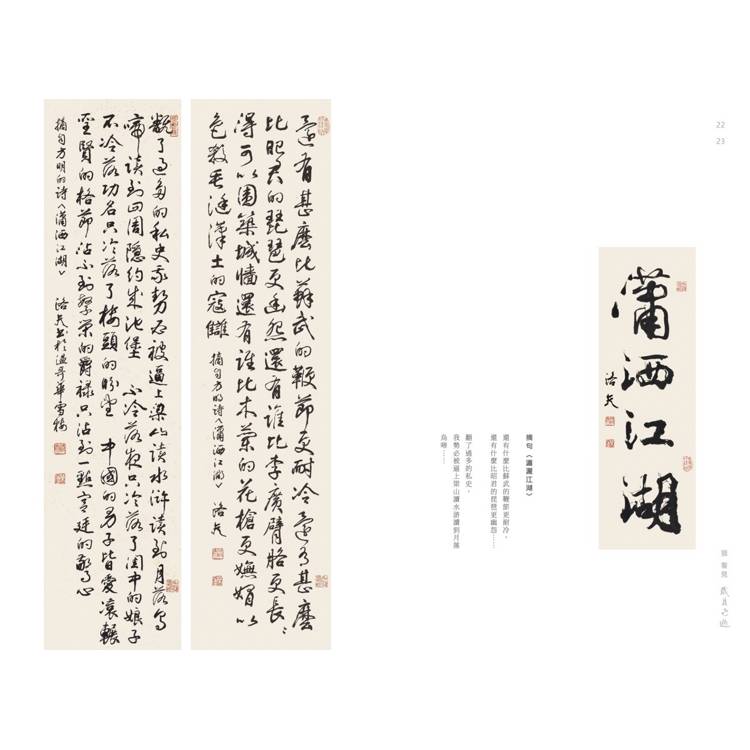 22
23
瀟洒江湖
洛夫
摘句《瀟灑江湖》
還有什麼比蘇武的鞭節更耐冷，
還有什麼比昭君的琵琶更幽怨……
翻了過多的私史，
我勢必被逼上梁山讀水滸讀到月落
烏啼……
還有甚麼比蘇武的鞭節更耐冷還有甚麼
比昭君的琵琶更幽怨還有誰比李廣臂胳更長
得可以圍築城牆還有誰比木蘭的花槍更嫵媚以
色殺毛漢土的寇讎
摘句方明的詩《瀟洒江湖》
洛夫
翻了過多的私史我勢必被逼上梁山讀水滸讀到月落烏
啼讀到四周隱約成池堡 不冷落夜只冷落了閨中的娘子
不冷落功名只冷落了樓頭的盼望 中國的男子皆愛
聖賢的格節沾不到繁榮的爵祿只沾到一點宮廷的
摘句方明的詩《瀟洒江湖》
洛夫